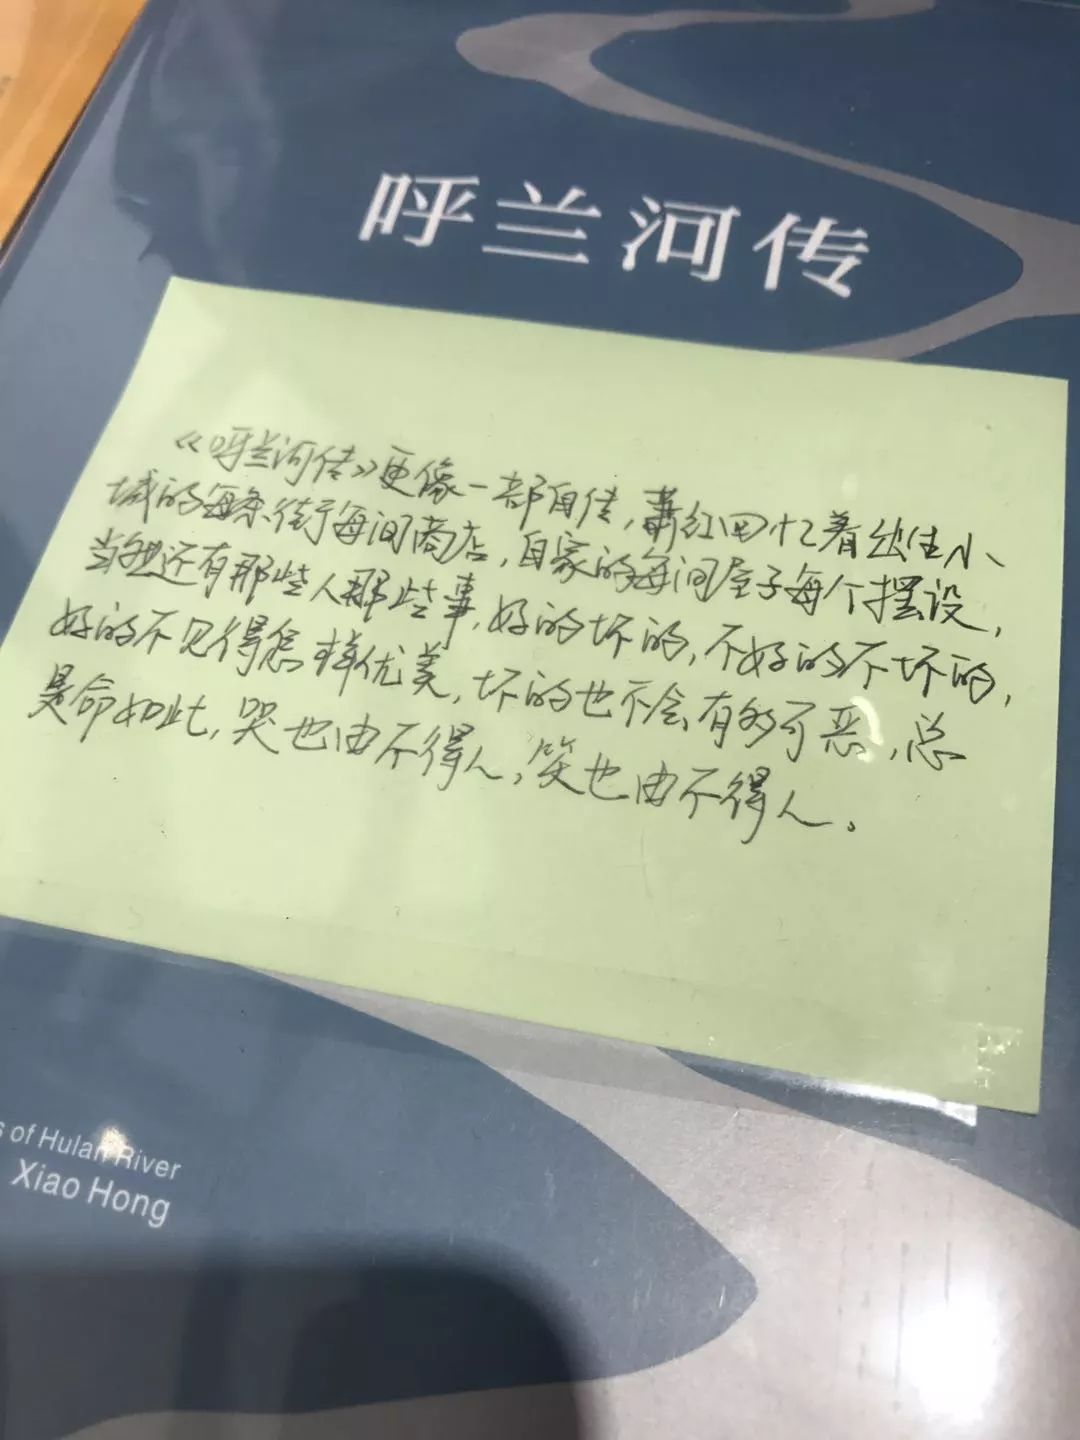 呼兰河传
《呼兰河传》更像一部自传，萧红回忆着出生小
城的每条街每间商店，自家的每间屋子每个摆设，
当然还有那些人那些事，好的坏的，不好的不坏的，
好的不见得怎样优美，坏的也不会有多可恶，总
是命如此，哭也由不得人，笑也由不得人。
s of Hulan River
Xiao Hong